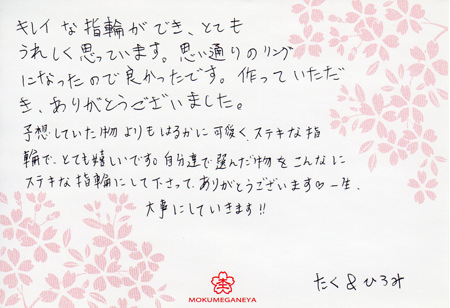 キレイな指輪ができ、とても
うれしく思っています。思い通りのリング
になったので良かったです。作っていただ
き、ありがとうございました。
予想していた物よりもはるかに可愛く、ステキな指
輪で、とても嬉しいです。自分達で選んだ物をこんなに
ステキな指輪にして下さって、ありがとうございます♡一生、
大事にしていきます!!
たく & ひろみ
MOKUMEGANEYA